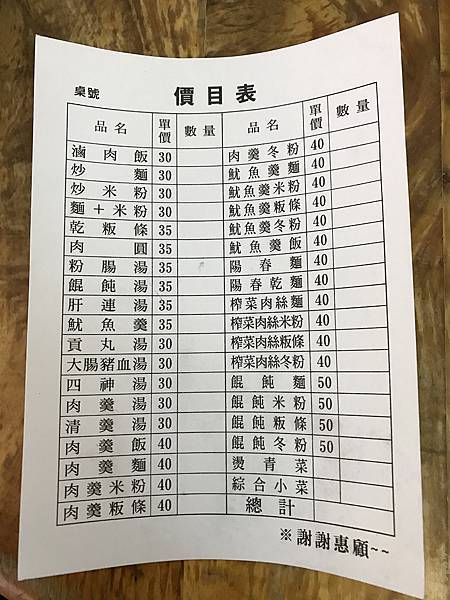 桌號 價目表
品名 單價 數量 品名 單價 數量
滷肉飯 30 肉羹冬粉 40
炒麵 30 魷魚羹麵 40
炒米粉 30 魷魚羹米粉 40
麵+米粉 30 魷魚羹粄條 40
乾粄條 35 魷魚羹冬粉 40
肉圓 35 魷魚羹飯 40
粉腸湯 35 陽春麵 40
餛飩湯 30 陽春乾麵 40
肝連湯 35 榨菜肉絲麵 40
魷魚羹 35 榨菜肉絲米粉 40
貢丸湯 30 榨菜肉絲粄條 40
大腸豬血湯 30 榨菜肉絲冬粉 40
四神湯 30 餛飩麵 50
肉羹湯 30 餛飩米粉 50
清羹湯 30 餛飩粄條 50
肉羹飯 40 餛飩冬粉 50
肉羹麵 40 燙青菜
肉羹米粉 40 綜合小菜
肉羹粄條 40 總計
※謝謝惠顧~~